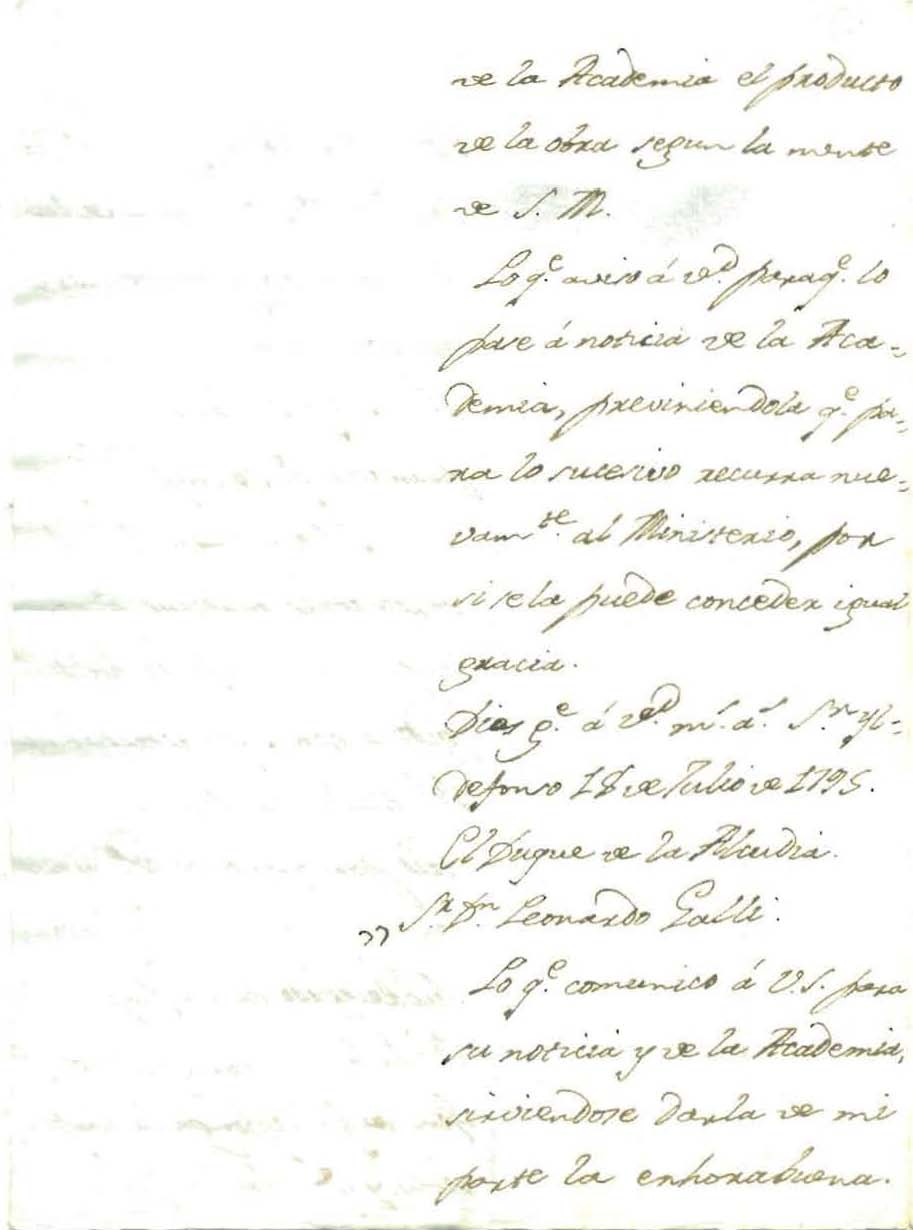 de la Academia el producto
de la obra segun la mente
de S. M.
Lo q.e aviso á v.d paraq.e lo
pase á noticia de la Aca=
demia, previniendola q.e pa=
ra lo sucesivo recurra nue=
vam.te al Ministerio, por
si se la puede conceder igual
gracia.
Dios g.e á v.d m.s a.s S.n Yl=
defonso 18 de Julio de 1795.
El Duque de la Alcudia.
"S.r D.n Leonardo Galli.
Lo q.e comunico á V.S. para
su noticia y de la Academia,
sirviendose darla de mi
parte la enhorabuena.